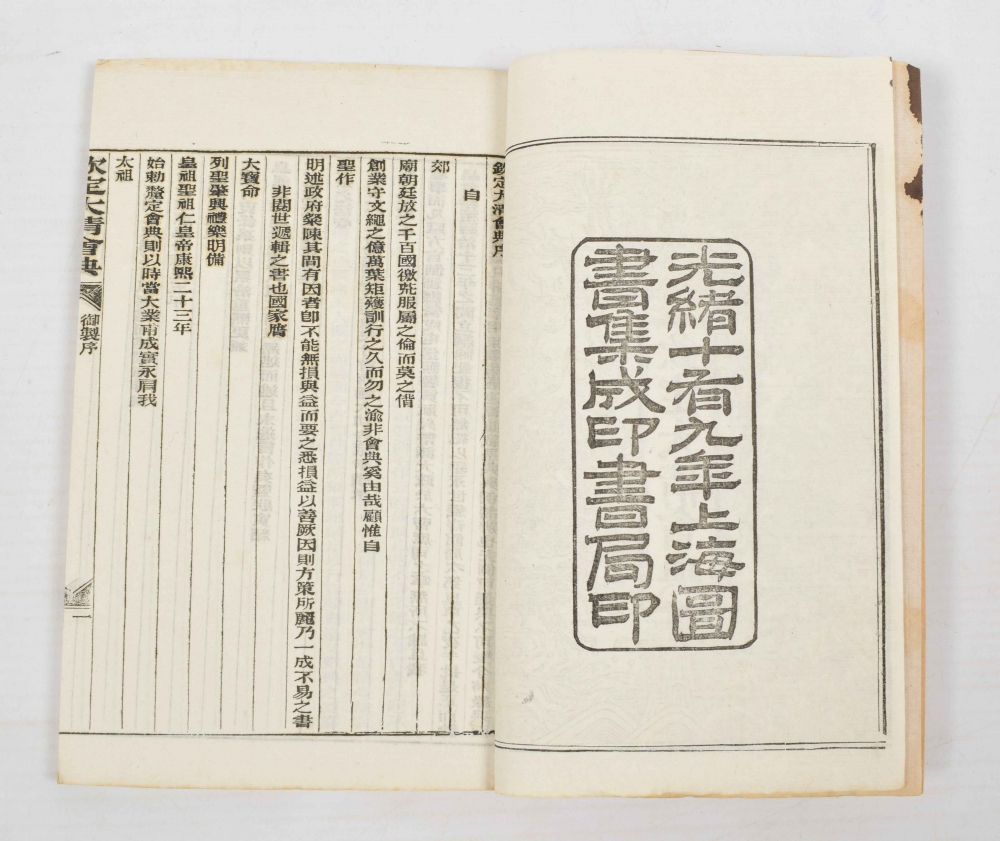 光緒十有九年上海圖
書集成印書局印
欽定大清會典序
自
郊
廟朝廷放之千百國徼荒服屬之倫而莫之偝
創業守文繩之億萬葉矩矱訓行之久而勿之渝非會典奚由哉顧惟自
聖作
明述政府粲陳其間有因者卽不能無損與益而要之悉損益以善厥因則方策所麗乃一成不易之書
非閱世遞輯之書也國家膺
大寶命
列聖肇興禮樂明備
皇祖聖祖仁皇帝康熙二十三年
始勅釐定會典則以時當大業甫成實永肩我
太祖
欽定大清會典
御製序
一